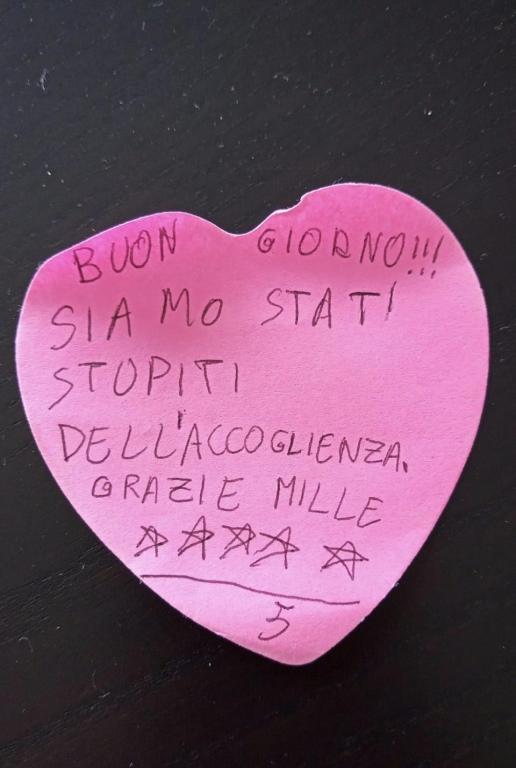 BUON GIORNO!!!
SIAMO STATI
STUPITI
DELL'ACCOGLIENZA.
GRAZIE MILLE
☆☆☆☆☆
5